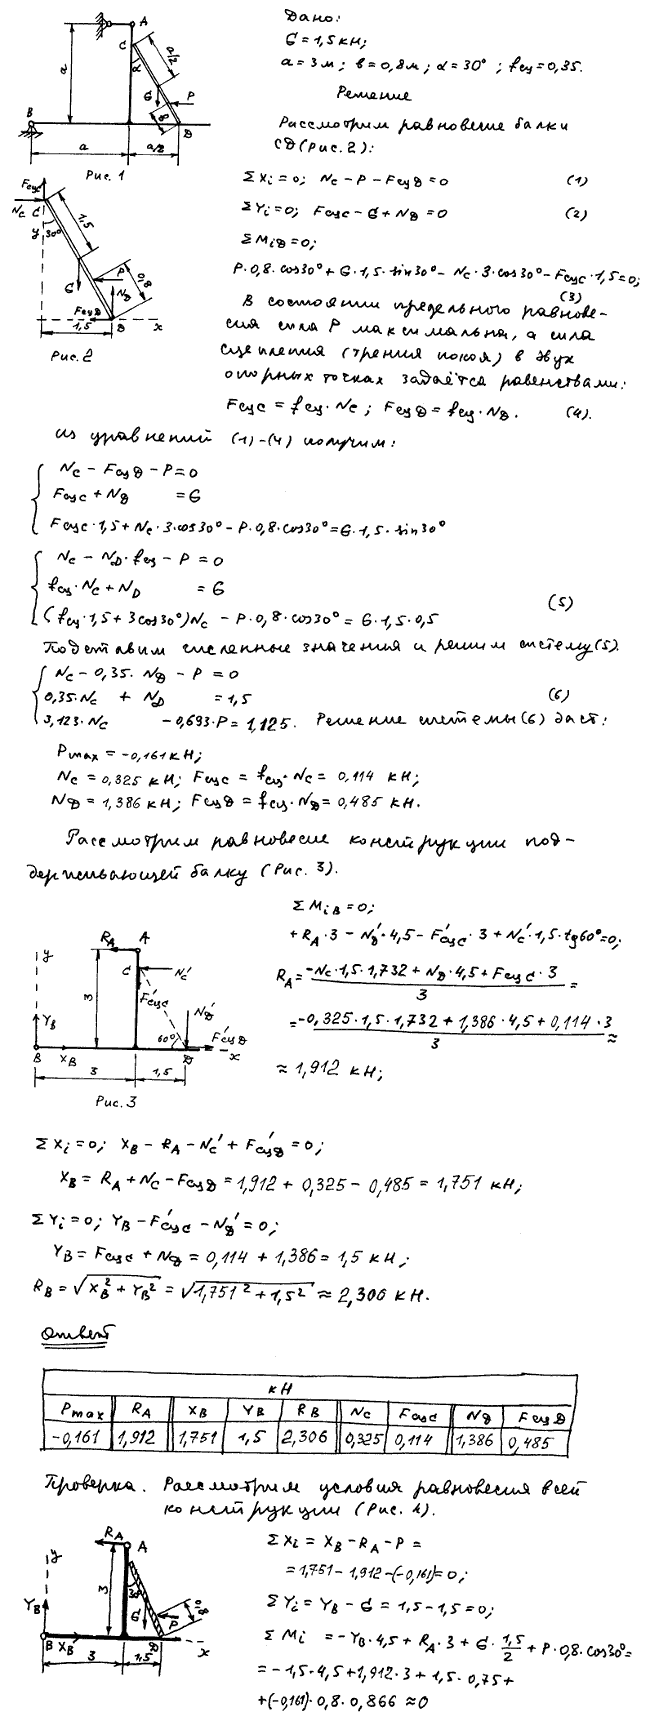 Дано:
G = 1,5 кН;
a = 3 м; b = 0,8 м; α = 30°; fсц = 0,35.
Решение
Рассмотрим равновесие балки
CD (Рис. 2):
A
C
a/2
α
a
G
P
B
B
D
a
a/2
Рис. 1
ΣXi = 0; Nc - P - FсцD = 0 (1)
ΣYi = 0; FсцC - G + ND = 0 (2)
ΣMiD = 0;
P·0,8·cos30° + G·1,5·sin30° - Nc·3·cos30° - FсцC·1,5 = 0;
(3)
FсцC
Nc
C
y
30°
1,5
P
G
ND
0,8
FсцD
1,5
D
x
Рис. 2
В состоянии предельного равнове-
сия сила P максимальна, а сила
сцепления (трения покоя) в двух
опорных точках задаётся равенствами:
FсцC = fсц·Nc; FсцD = fсц·ND. (4).
Из уравнений (1)-(4) получим:
Nc - FсцD - P = 0
FсцC + ND = G
FсцC·1,5 + Nc·3·cos30° - P·0,8·cos30° = G·1,5·sin30°
Nc - ND·fсц - P = 0
fсц·Nc + ND = G
(fсц·1,5 + 3cos30°)Nc - P·0,8·cos30° = G·1,5·0,5 (5)
Подставим численные значения и решим систему (5).
Nc - 0,35·ND - P = 0
0,35·Nc + ND = 1,5 (6)
3,123·Nc - 0,693·P = 1,125. Решение системы (6) даст:
Pmax = -0,161 кН;
Nc = 0,325 кН; FсцC = fсц·Nc = 0,114 кН;
ND = 1,386 кН; FсцD = fсц·ND = 0,485 кН.
Рассмотрим равновесие конструкции под-
держивающей балку (Рис. 3).
RA
A
y
C
Nc'
F'сцC
3
ND'
YB
60°
F'сцD
B
XB
D
x
3
1,5
Рис. 3
ΣMiB = 0;
+RA·3 - ND'·4,5 - F'сцC·3 + Nc'·1,5·tg60° = 0;
RA = (-Nc·1,5·1,732 + ND·4,5 + FсцC·3)/3 =
= (-0,325·1,5·1,732 + 1,386·4,5 + 0,114·3)/3 ≈
≈ 1,912 кН;
ΣXi = 0; XB - RA - Nc' + F'сцD = 0;
XB = RA + Nc - FсцD = 1,912 + 0,325 - 0,485 = 1,751 кН;
ΣYi = 0; YB - F'сцC - ND' = 0;
YB = FсцC + ND = 0,114 + 1,386 = 1,5 кН;
RB = √(XB² + YB²) = √(1,751² + 1,5²) ≈ 2,306 кН.
Ответ
кН
Pmax RA XB YB RB Nc FсцC ND FсцD
-0,161 1,912 1,751 1,5 2,306 0,325 0,114 1,386 0,485
Проверка. Рассмотрим условия равновесия всей
конструкции (Рис. 4).
RA
A
y
3
30°
YB
G
P
0,8
B
XB
D
x
3
1,5
ΣXi = XB - RA - P =
= 1,751 - 1,912 - (-0,161) = 0;
ΣYi = YB - G = 1,5 - 1,5 = 0;
ΣMi = -YB·4,5 + RA·3 + G·1,5/2 + P·0,8·cos30° =
= -1,5·4,5 + 1,912·3 + 1,5·0,75 +
+(-0,161)·0,8·0,866 ≈ 0